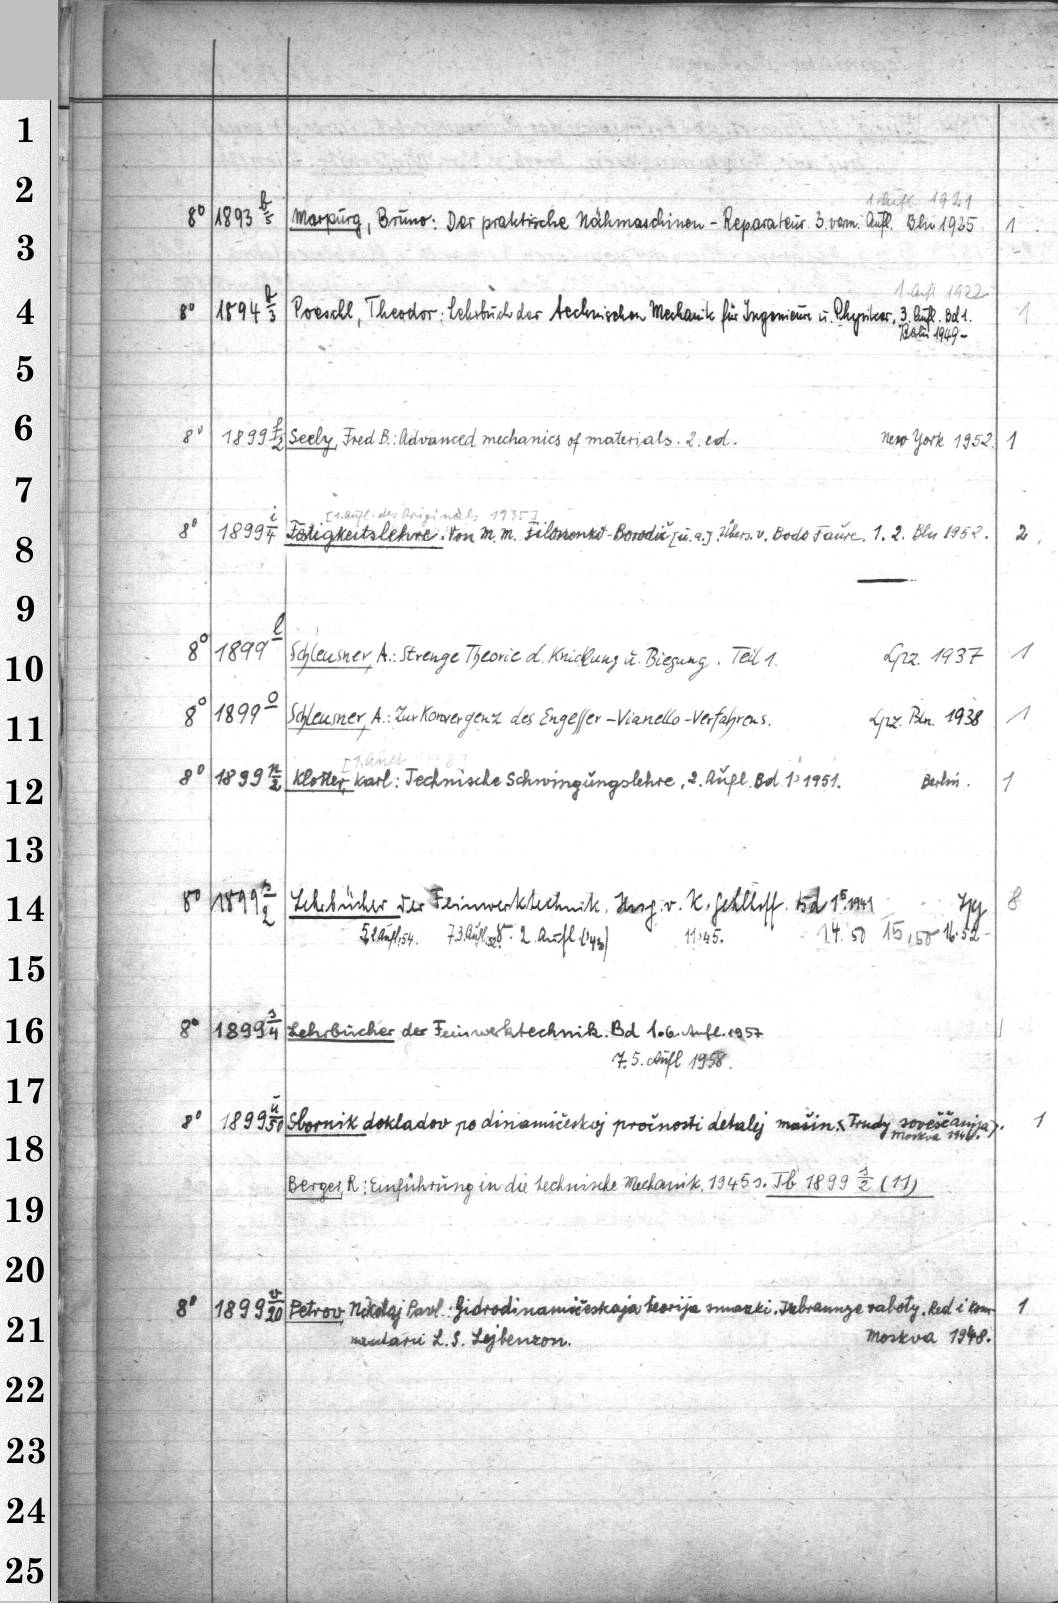 1
2
1. Aufl. 1921
8° 1893 b/5 Marpurg, Bruno: Der praktische Nähmaschinen-Reparateur. 3. verm. Aufl. Bln 1925 1
3
1. Aufl 1922
4 8° 1894 b/3 Poeschl, Theodor: Lehrbuch der technischen Mechanik für Ingenieure u. Physiker, 3. Aufl. Bd 1. 1
Berlin 1949-
5
6 8° 1899 f/2 Seely, Fred B.: Advanced mechanics of materials. 2. ed. New York 1952. 1
7
[1. Aufl. des Originals 1935]
8 8° 1899 i/4 Festigkeitslehre. Von M. M. Filonenko-Borodič [u.a.]. Übers. v. Bodo Faure. 1. 2. Bln 1952. 2
9
10 8° 1899 l Schleusner, A.: Strenge Theorie d. Knickung u. Biegung. Teil 1. Lpz. 1937 1
11 8° 1899 o Schleusner, A.: Zur Konvergenz des Engesser-Vianello-Verfahrens. Lpz. Bln. 1938 1
[1. Aufl
12 8° 1899 n/2 Klotter, Karl: Technische Schwingungslehre, 2. Aufl. Bd 1. 1951. Berlin. 1
13
14 8° 1899 s/2 Lehrbücher der Feinwerktechnik. Hrsg. v. K. Gehlhoff. Bd 1 5. 1941 Lpz 8
5, 2. Aufl, 54. 7 3. Aufl. 52. 8. 2. Aufl ('43) 11 '45. 14. 50 15, 50 16. 52-
15
16 8° 1899 s/4 Lehrbücher der Feinwerktechnik. Bd 1. 6. Aufl. 1957 1
7. 5. Aufl 1958.
17
8° 1899 ü/50 Sbornik dokladov po dinamičeskoj pročnosti detalej mašin. (Trudy soveščanija). 1
18 Moskva 1946.
Berger, R.: Einführung in die technische Mechanik. 1945 s. Tb 1899 s/2 (11)
19
20
8° 1899 v/20 Petrov, Nikolaj Pavl.: Gidrodinamičeskaja teorija smazki. Izbrannye raboty. Red i kom- 1
21 mentarii L. S. Lejbenzon. Moskva 1948.
22
23
24
25